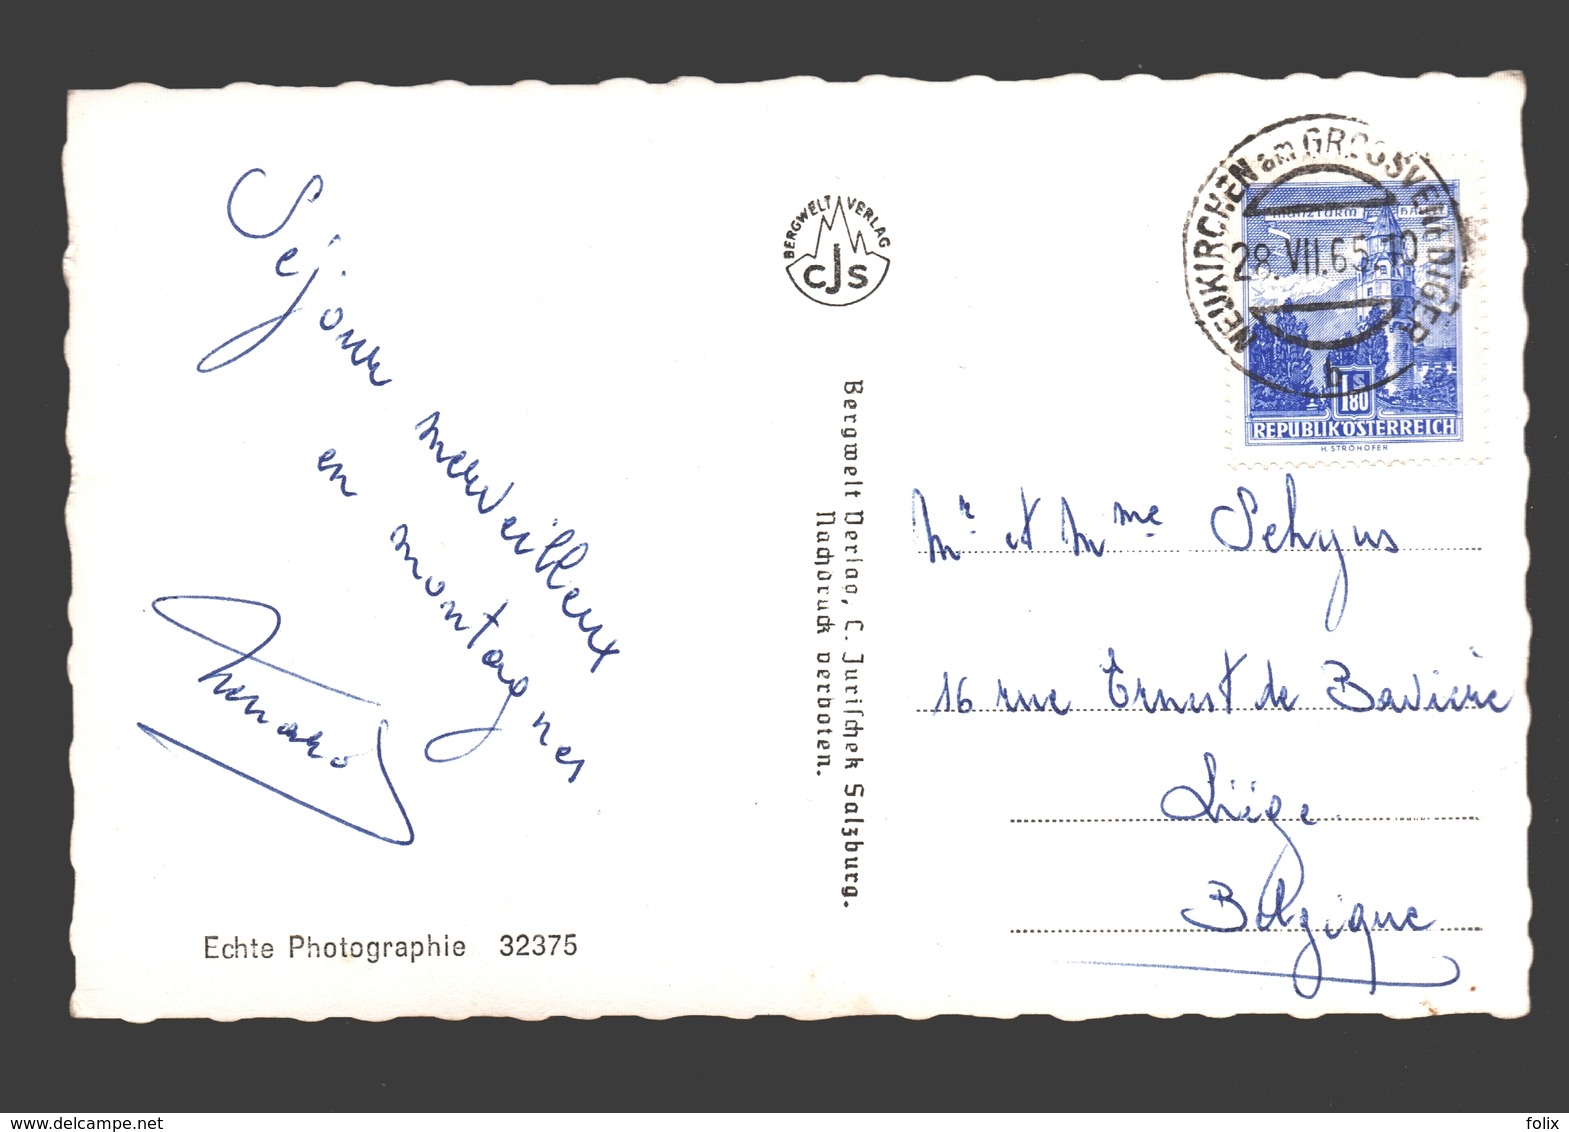 Séjour merveilleux
en montagnes
Echte Photographie 32375
BERGWELT VERLAG
CJS
Bergwelt Verlag, C. Jurischek Salzburg.
Nachdruck verboten.
NEUKIRCHEN am GROSSVENEDIGER
28.VII.65.10
b
MÜNZTURM HALL
S
1.80
REPUBLIK ÖSTERREICH
H. STROHOFER
Mr et Mme Sehyns
16 rue Ernest de Bavière
Liège.
Belgique
www.delcampe.net
folix